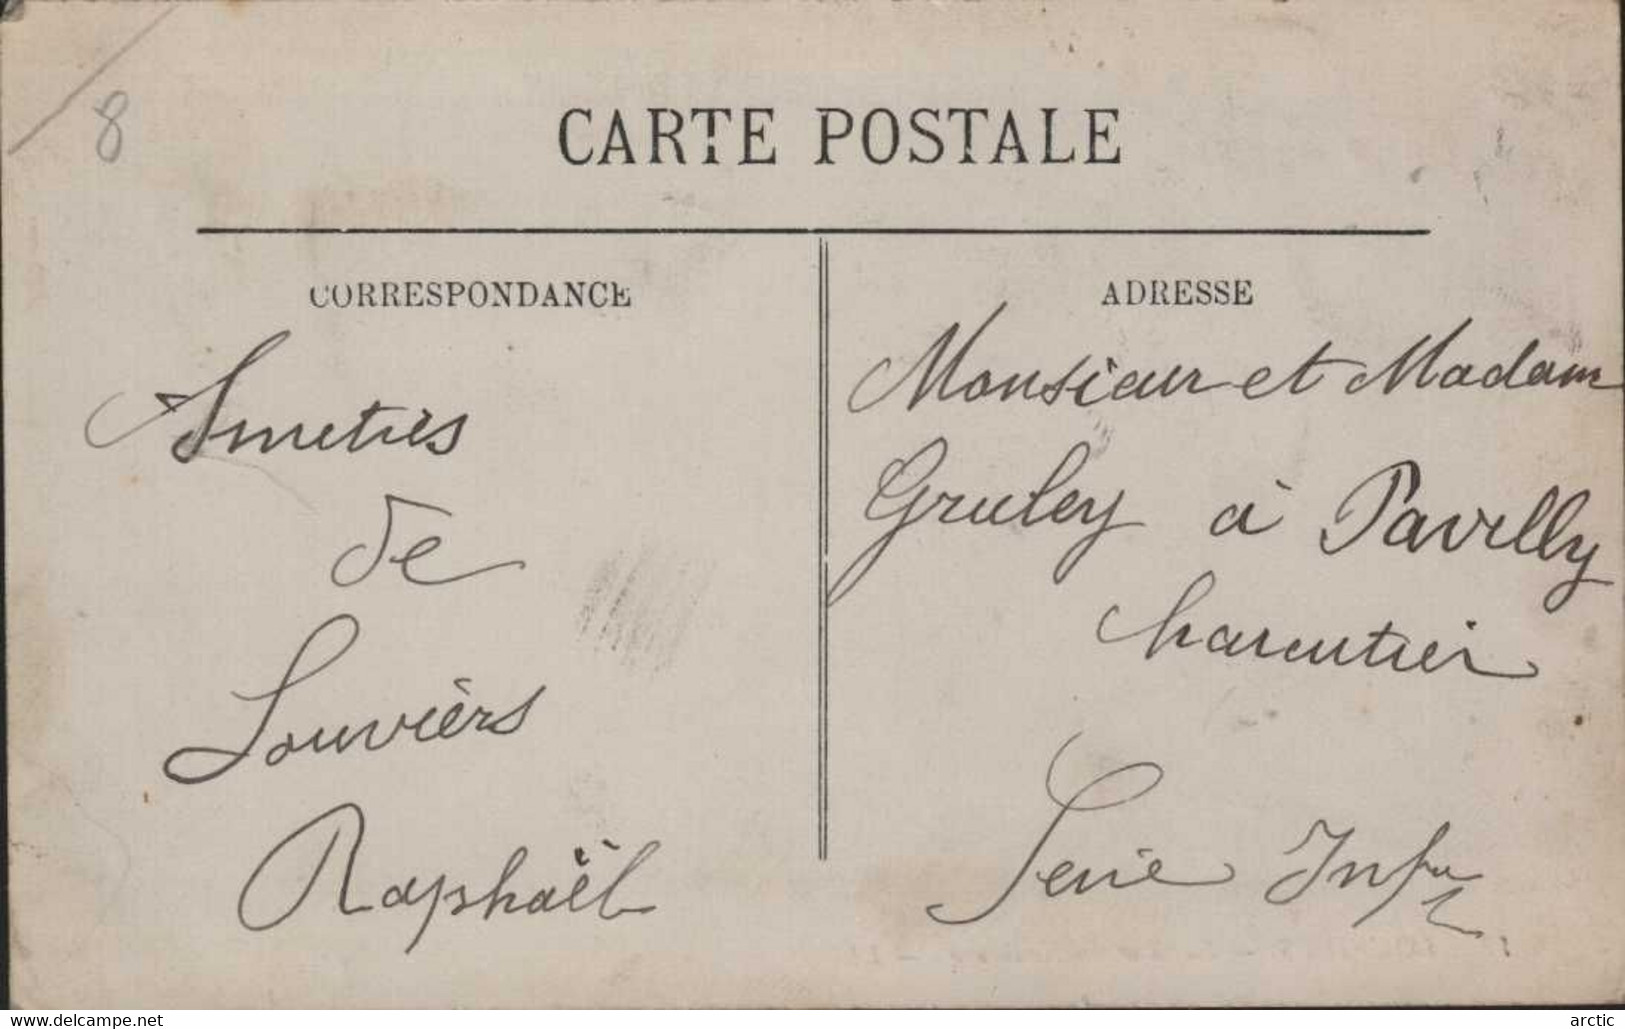 8
CARTE POSTALE
CORRESPONDANCE
Ametiés
de
Louvièrs
Raphaël
ADRESSE
Monsieur et Madam
Gruley à Pavilly
charcutier
Seine Infre
www.delcampe.net
arctic